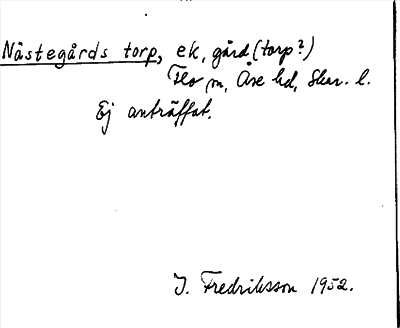 Nästegårds torp, ek, gård (torp?)
Flo sn, Åse hd, Skar. l.
Ej anträffat.
J. Fredriksson 1952.